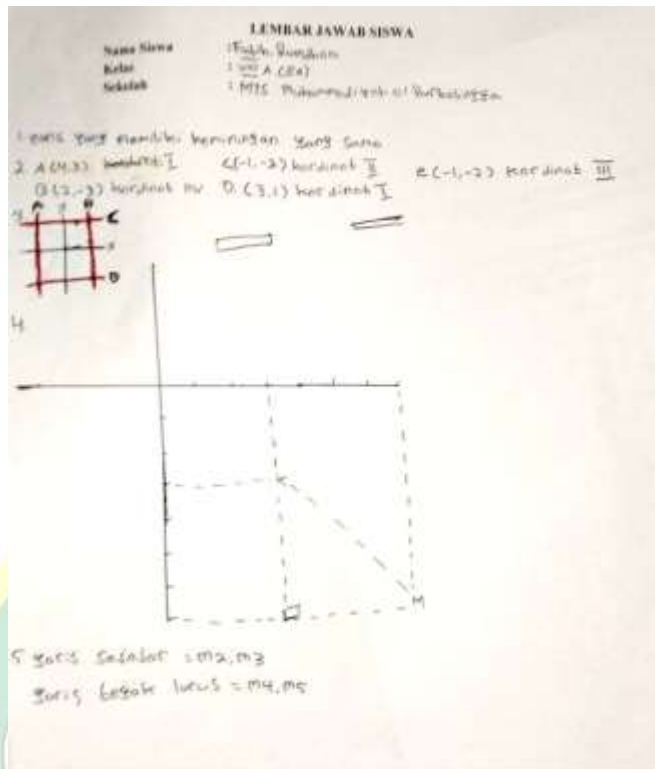 LEMBAR JAWAB SISWA
Nama Siswa :
Kelas : VIII A
Sekolah : MTS Muhammadiyah 01 Purbalingga
1. garis yang memiliki kemiringan yang sama
2. A(4,3) I C(-1,-2) kordinat II E(-1,-2) kordinat III
B(2,-3) kordinat IV D. (3,1) kordinat I
3. A B C
D
4.
M
5 garis sejajar = m2, m3
garis tegak lurus = m4, m5